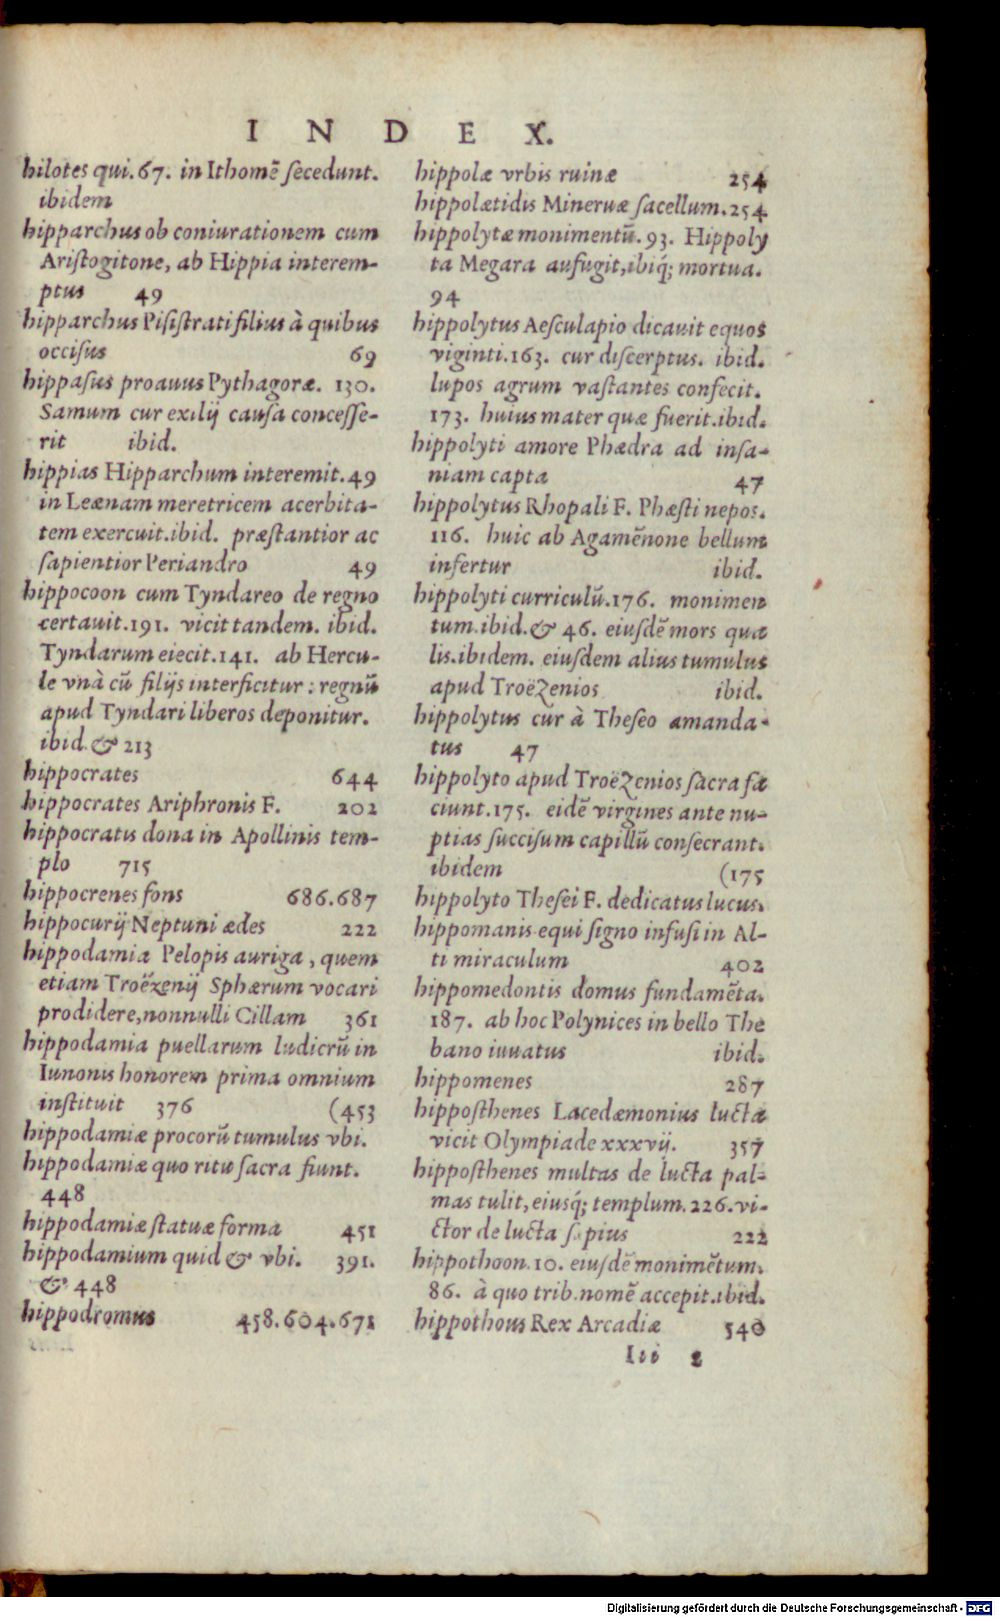 INDEX.
hilotes qui.67. in Ithomē ſecedunt.
ibidem
hipparchus ob coniurationem cum
Ariſtogitone, ab Hippia interem-
ptus 49
hipparchus Piſiſtrati filius à quibus
occiſus 69
hippaſus proauus Pythagoræ. 130.
Samum cur exilij cauſa conceſſe-
rit ibid.
hippias Hipparchum interemit.49
in Leænam meretricem acerbita-
tem exercuit.ibid. præſtantior ac
ſapientior Periandro 49
hippocoon cum Tyndareo de regno
certauit.191. vicit tandem. ibid.
Tyndarum eiecit.141. ab Hercu-
le vnà cū filijs interficitur : regnū
apud Tyndari liberos deponitur.
ibid.& 213
hippocrates 644
hippocrates Ariphronis F. 202
hippocratis dona in Apollinis tem-
plo 715
hippocrenes fons 686.687
hippocurij Neptuni ædes 222
hippodamia Pelopis auriga, quem
etiam Troëzenij Sphærum vocari
prodidere,nonnulli Cillam 361
hippodamia puellarum ludicrū in
Iunonis honorem prima omnium
inſtituit 376 (453
hippodamiæ procorū tumulus vbi.
hippodamiæ quo ritu ſacra fiunt.
448
hippodamiæ ſtatuæ forma 451
hippodamium quid & vbi. 391.
& 448
hippodromus 458.604.671
hippolæ vrbis ruinæ 254
hippolætidis Mineruæ ſacellum.254
hippolytæ monimentū.93. Hippoly
ta Megara aufugit,ibiq́; mortua.
94
hippolytus Aeſculapio dicauit equos
viginti.163. cur diſcerptus. ibid.
lupos agrum vaſtantes confecit.
173. huius mater quæ fuerit.ibid.
hippolyti amore Phædra ad inſa-
niam capta 47
hippolytus Rhopali F. Phæſti nepos.
116. huic ab Agamēnone bellum
infertur ibid.
hippolyti curriculū.176. monimen
tum.ibid.& 46. eiuſdē mors qua
lis.ibidem. eiuſdem alius tumulus
apud Troëzenios ibid.
hippolytus cur à Theſeo amanda-
tus 47
hippolyto apud Troëzenios ſacra fa
ciunt.175. eidē virgines ante nu-
ptias ſucciſum capillū conſecrant.
ibidem (175
hippolyto Theſei F. dedicatus lucus.
hippomanis equi ſigno infuſi in Al-
ti miraculum 402
hippomedontis domus fundamēta.
187. ab hoc Polynices in bello The
bano iuuatus ibid.
hippomenes 287
hippoſthenes Lacedæmonius lucta
vicit Olympiade xxxvij. 357
hippoſthenes multas de lucta pal-
mas tulit,eiusq́; templum.226.vi-
ctor de lucta ſæpius 222
hippothoon.10. eiuſdē monimētum.
86. à quo trib.nomē accepit.ibid.
hippothous Rex Arcadiæ 540
Iii 2
Digitalisierung gefördert durch die Deutsche Forschungsgemeinschaft - DFG